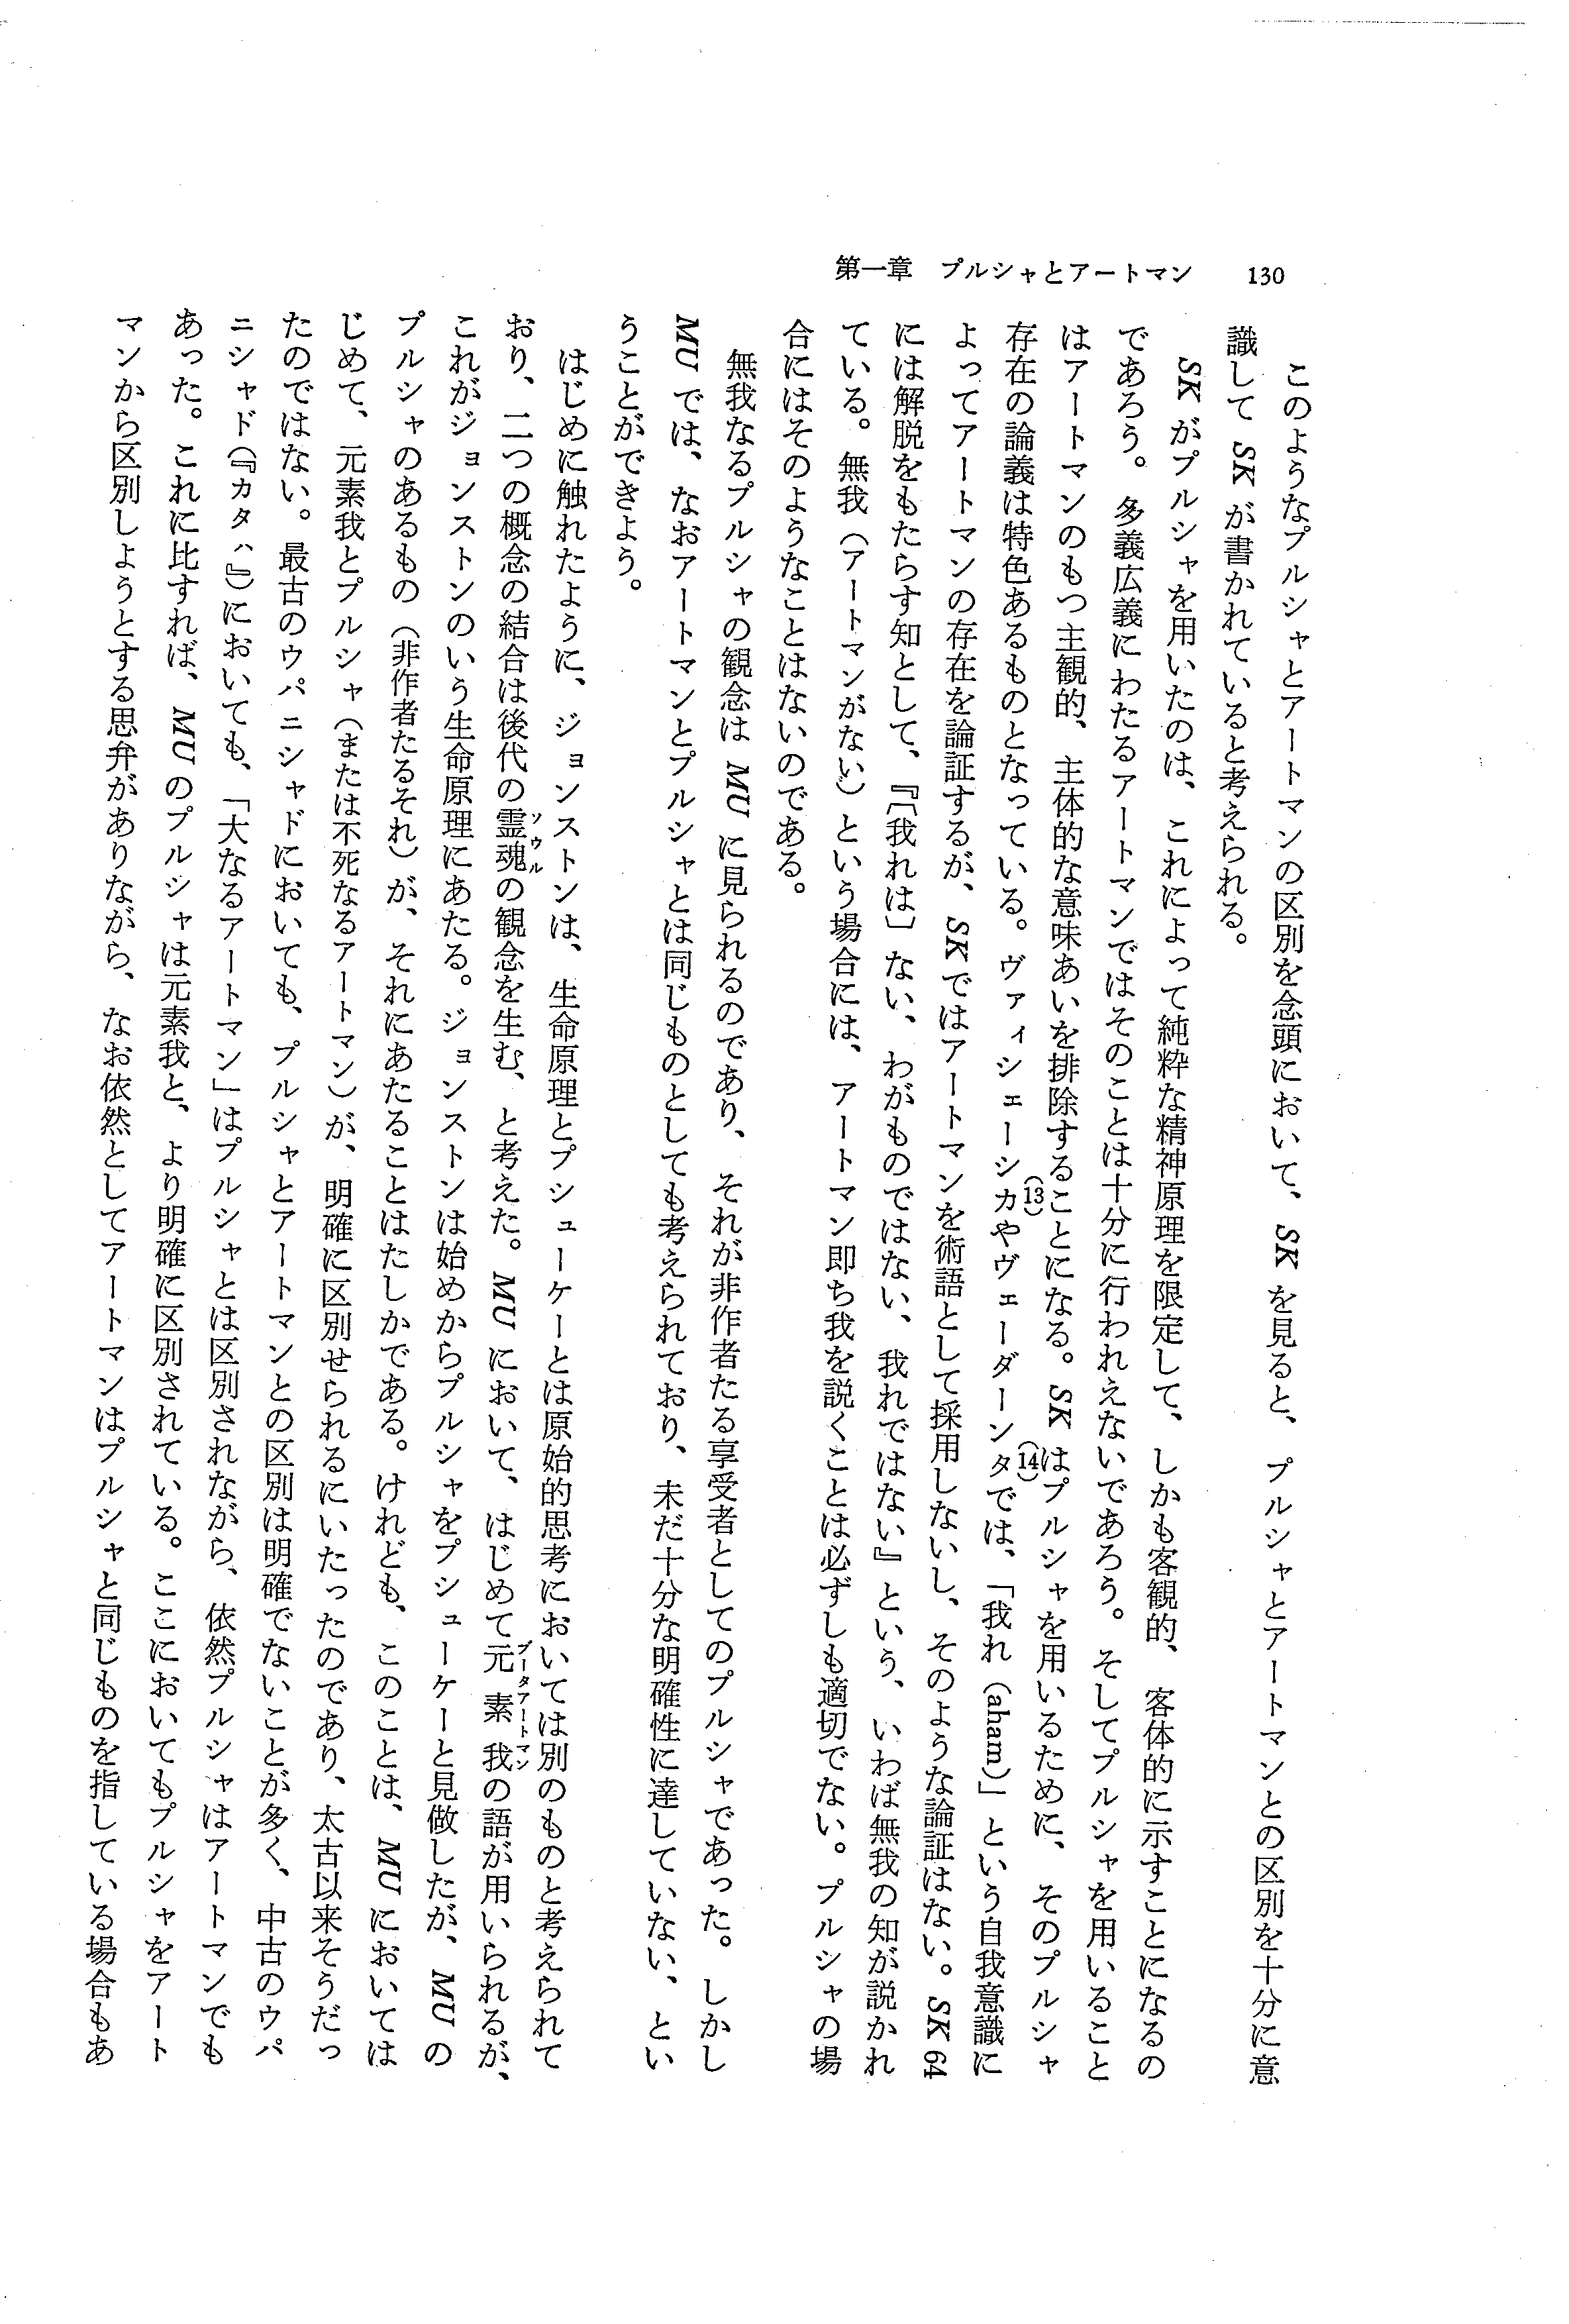 第一章　プルシャとアートマン　130
　このようなプルシャとアートマンの区別を念頭において、SK を見ると、プルシャとアートマンとの区別を十分に意
識して SK が書かれていると考えられる。
　SK がプルシャを用いたのは、これによって純粋な精神原理を限定して、しかも客観的、客体的に示すことになるの
であろう。多義広義にわたるアートマンではそのことは十分に行われえないであろう。そしてプルシャを用いること
はアートマンのもつ主観的、主体的な意味あいを排除することになる。SK はプルシャを用いるために、そのプルシャ
存在の論義は特色あるものとなっている。ヴァィシェーシカ(13)やヴェーダーンタ(14)では、「我れ（aham）」という自我意識に
よってアートマンの存在を論証するが、SK ではアートマンを術語として採用しないし、そのような論証はない。SK 64
には解脱をもたらす知として、『〔我れは〕ない、わがものではない、我れではない』という、いわば無我の知が説かれ
ている。無我（アートマンがない）という場合には、アートマン即ち我を説くことは必ずしも適切でない。プルシャの場
合にはそのようなことはないのである。
　無我なるプルシャの観念は MU に見られるのであり、それが非作者たる享受者としてのプルシャであった。しかし
MU では、なおアートマンとプルシャとは同じものとしても考えられており、未だ十分な明確性に達していない、とい
うことができよう。
　はじめに触れたように、ジョンストンは、生命原理とプシューケーとは原始的思考においては別のものと考えられて
おり、二つの概念の結合は後代の霊魂（ソウル）の観念を生む、と考えた。MU において、はじめて元素我（ブータアートマン）の語が用いられるが、
これがジョンストンのいう生命原理にあたる。ジョンストンは始めからプルシャをプシューケーと見做したが、MU の
プルシャのあるもの（非作者たるそれ）が、それにあたることはたしかである。けれども、このことは、MU においては
じめて、元素我とプルシャ（または不死なるアートマン）が、明確に区別せられるにいたったのであり、太古以来そうだっ
たのではない。最古のウパニシャドにおいても、プルシャとアートマンとの区別は明確でないことが多く、中古のウパ
ニシャド（『カタハ』）においても、「大なるアートマン」はプルシャとは区別されながら、依然プルシャはアートマンでも
あった。これに比すれば、MU のプルシャは元素我と、より明確に区別されている。ここにおいてもプルシャをアート
マンから区別しようとする思弁がありながら、なお依然としてアートマンはプルシャと同じものを指している場合もあ